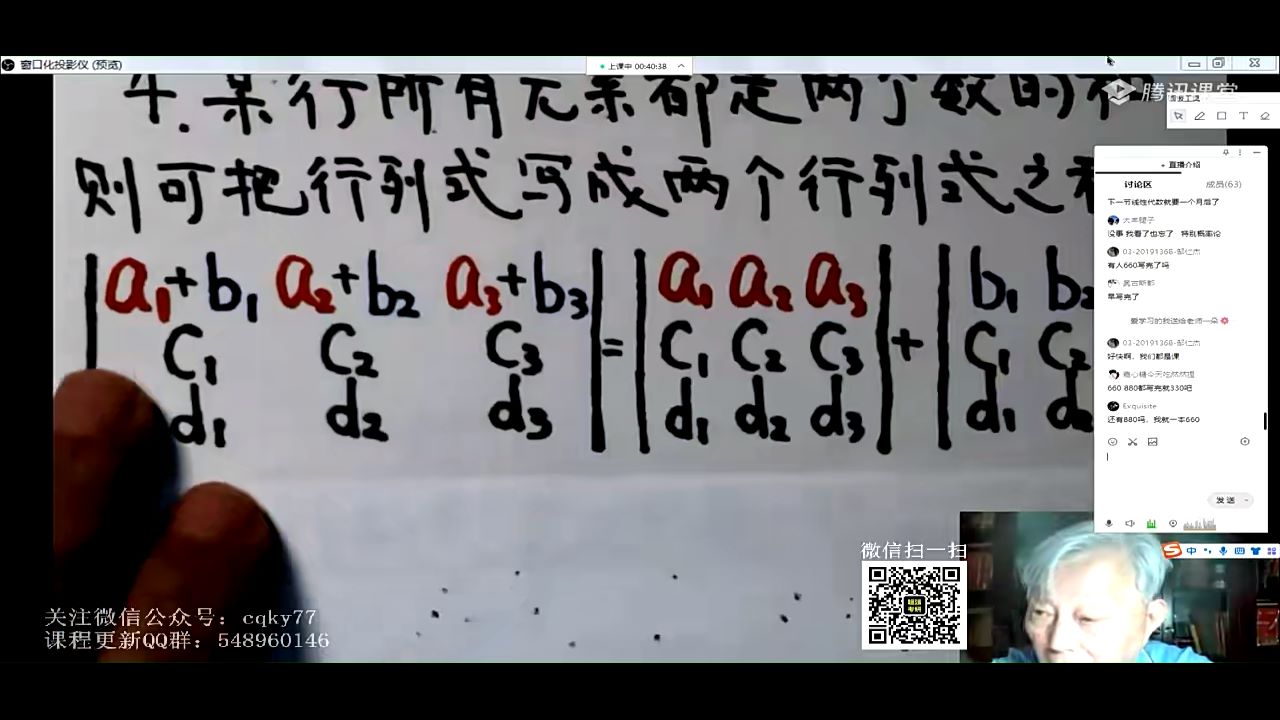 窗口化投影仪 (预览)
上课中 00:40:38
腾讯课堂
4. 某行所有元素都是两个数的和
则可把行列式写成两个行列式之和
a₁+b₁ a₂+b₂ a₃+b₃ | = | a₁ a₂ a₃ | + | b₁ b₂
c₁ c₂ c₃ c₁ c₂ c₃ c₁ c₂
d₁ d₂ d₃ d₁ d₂ d₃ d₁ d₂
直播介绍
讨论区 成员(63)
下一节线性代数就要一个月后了
没事 我看了也忘了 特别概率论
03-20191368-邹仁杰
有人660写完了吗
早写完了
爱学习的我送给老师一朵
03-20191368-邹仁杰
好快啊，我们都是课
660 880都写完就330吧
Exquisite
还有880吗，我就一本660
发送
中
微信扫一扫
关注微信公众号：cqky77
课程更新QQ群：548960146